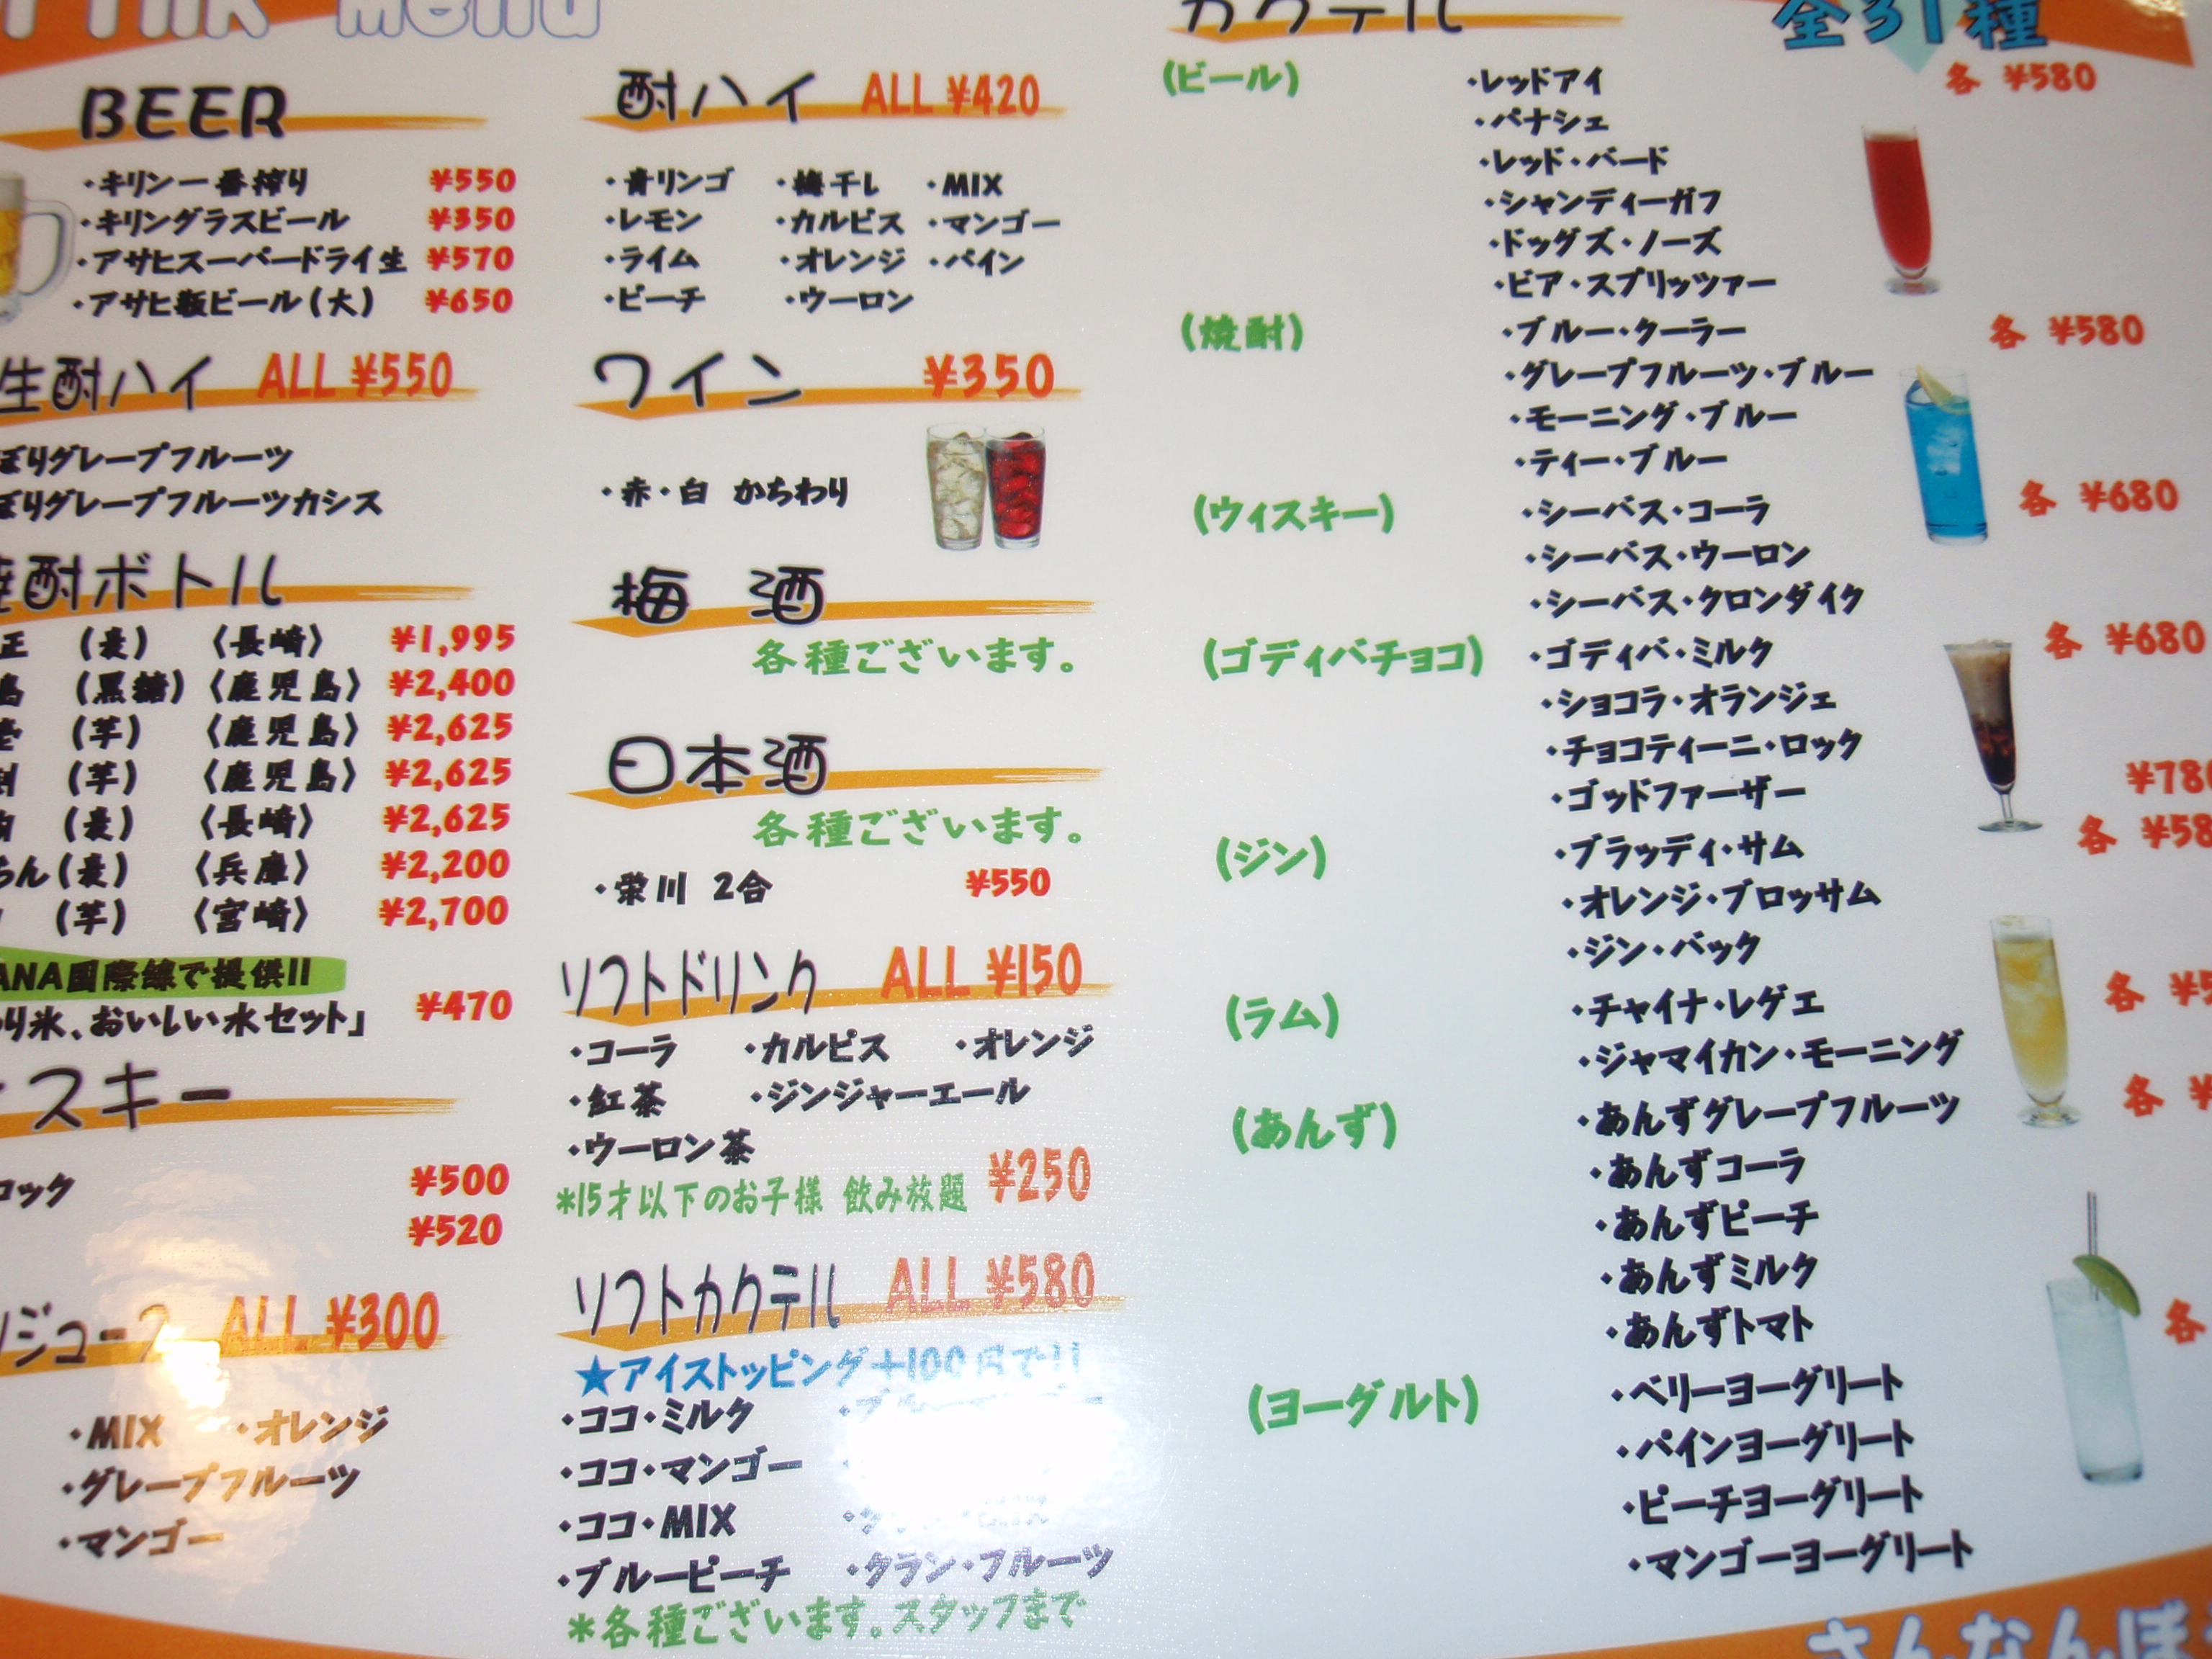 Menu
BEER
・キリン一番搾り ¥550
・キリングラスビール ¥350
・アサヒスーパードライ生 ¥570
・アサヒ瓶ビール(大) ¥650
生酎ハイ ALL ¥550
ぼりグレープフルーツ
ぼりグレープフルーツカシス
焼酎ボトル
正 (麦) 〈長崎〉 ¥1,995
島 (黒糖) 〈鹿児島〉 ¥2,400
(芋) 〈鹿児島〉 ¥2,625
(芋) 〈鹿児島〉 ¥2,625
(麦) 〈長崎〉 ¥2,625
ちん (麦) 〈兵庫〉 ¥2,200
(芋) 〈宮崎〉 ¥2,700
ANA国際線で提供!!
り氷、おいしい水セット」 ¥470
スキー
ロック ¥500
¥520
ジュース ALL ¥300
・MIX ・オレンジ
・グレープフルーツ
・マンゴー
酎ハイ ALL ¥420
・青リンゴ ・梅干し ・MIX
・レモン ・カルピス ・マンゴー
・ライム ・オレンジ ・パイン
・ピーチ ・ウーロン
ワイン ¥350
・赤・白 かちわり
梅酒
各種ございます。
日本酒
各種ございます。
・栄川 2合 ¥550
ソフトドリンク ALL ¥150
・コーラ ・カルピス ・オレンジ
・紅茶 ・ジンジャーエール
・ウーロン茶
*15才以下のお子様 飲み放題 ¥250
ソフトカクテル ALL ¥580
★アイストッピング+100円で!!
・ココ・ミルク
・ココ・マンゴー
・ココ・MIX
・ブルーピーチ ・クラン・フルーツ
*各種ございます。スタッフまで
カクテル 全31種
(ビール) ・レッドアイ 各 ¥580
・パナシェ
・レッド・バード
・シャンディーガフ
・ドッグズ・ノーズ
・ビア・スプリッツァー
(焼酎) ・ブルー・クーラー 各 ¥580
・グレープフルーツ・ブルー
・モーニング・ブルー
・ティー・ブルー
(ウィスキー) ・シーバス・コーラ 各 ¥680
・シーバス・ウーロン
・シーバス・クロンダイク
(ゴディバチョコ) ・ゴディバ・ミルク 各 ¥680
・ショコラ・オランジェ
・チョコティーニ・ロック
・ゴッドファーザー ¥780
(ジン) ・ブラッディ・サム 各 ¥58
・オレンジ・ブロッサム
・ジン・バック
(ラム) ・チャイナ・レゲエ 各 ¥5
・ジャマイカン・モーニング
(あんず) ・あんずグレープフルーツ 各 ¥
・あんずコーラ
・あんずピーチ
・あんずミルク
・あんずトマト
(ヨーグルト) ・ベリーヨーグリート 各
・パインヨーグリート
・ピーチヨーグリート
・マンゴーヨーグリート
さんなんぼ